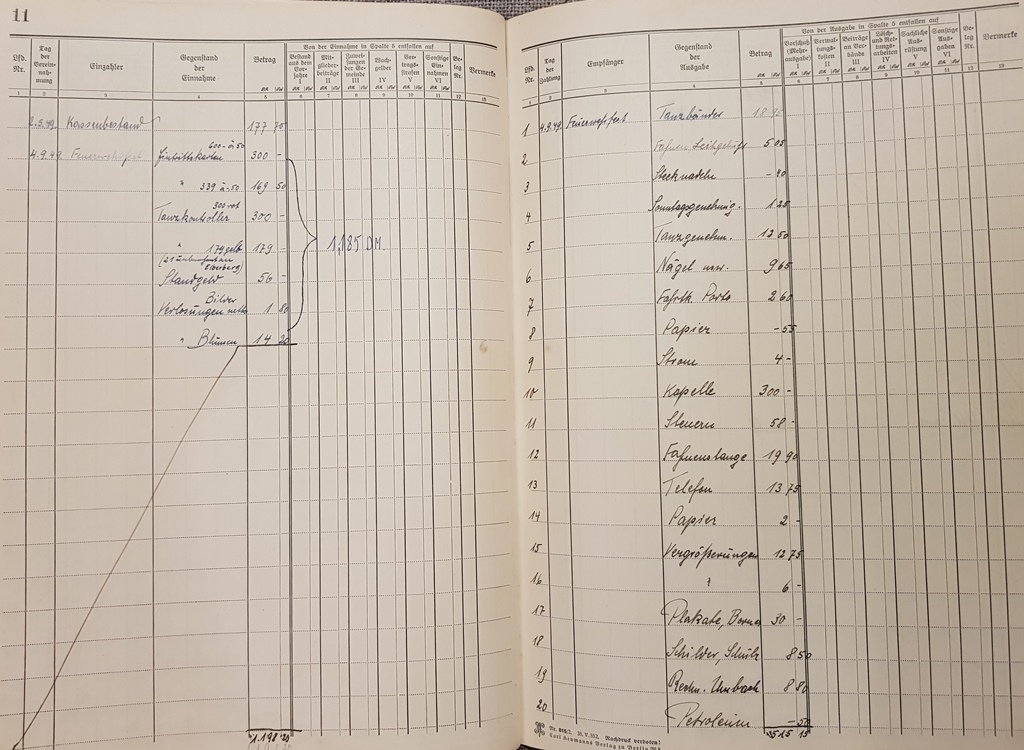 11
Von der Einnahme in Spalte 5 entfallen auf
Lfd. Nr.
Tag der Vereinnahmung
Einzahler
Gegenstand der Einnahme
Betrag
Bestand aus dem Vorjahre I
Mitgliederbeiträge II
Zuweisungen der Gemeinde III
Wachgelder IV
Vertragsstrafen V
Sonstige Einnahmen VI
Beleg Nr.
Vermerke
1 2 3 4 5 6 7 8 9 10 11 12 13
2.9.49. Kassenbestand 177 70
600 - à 50
4.9.49. Feuerwehrfest Eintrittskarten 300 -
" 339 à -.50 169 50
300 rot
Tanzkontroller 300 -
" 179 gelb 179 -
(21
Standgeld 56 -
Bilder
Verlosungen netto 1 80
" Blumen 14 20
1,185 DM.
1.198 20
Von der Ausgabe in Spalte 5 entfallen auf
Lfd. Nr.
Tag der Zahlung
Empfänger
Gegenstand der Ausgabe
Betrag
Vorschuß (Mehrausgabe) I
Verwaltungskosten II
Beiträge an Verbände III
Lösch- und Rettungsarbeiten IV
Sachliche Ausrüstung V
Sonstige Ausgaben VI
Beleg Nr.
Vermerke
1 2 3 4 5 6 7 8 9 10 11 12 13
1 4.9.49. Feuerwehrfest Tanzbänder 18 95
2 5 05
3 Stecknadeln - 90
4 Sonntagsgenehmig. 1 25
5 Tanzgenehm. 12 50
6 Nägel usw. 9 65
7 Fahrtk. Porto 2 60
8 Papier - 55
9 Strom 4 -
10 Kapelle 300 -
11 Steuern 58 -
12 Fahnenstange 19 90
13 Telefon 13 75
14 Papier 2 -
15 Vergrößerungen 12 75
16 " 6 -
17 Plakate, 30 -
18 Schilder, Schulz 8 50
19 Rechn. Umbach 8 80
20 Petroleum - 50
515 15
Nachdruck verboten!
Carl Heymanns Verlag zu Berlin